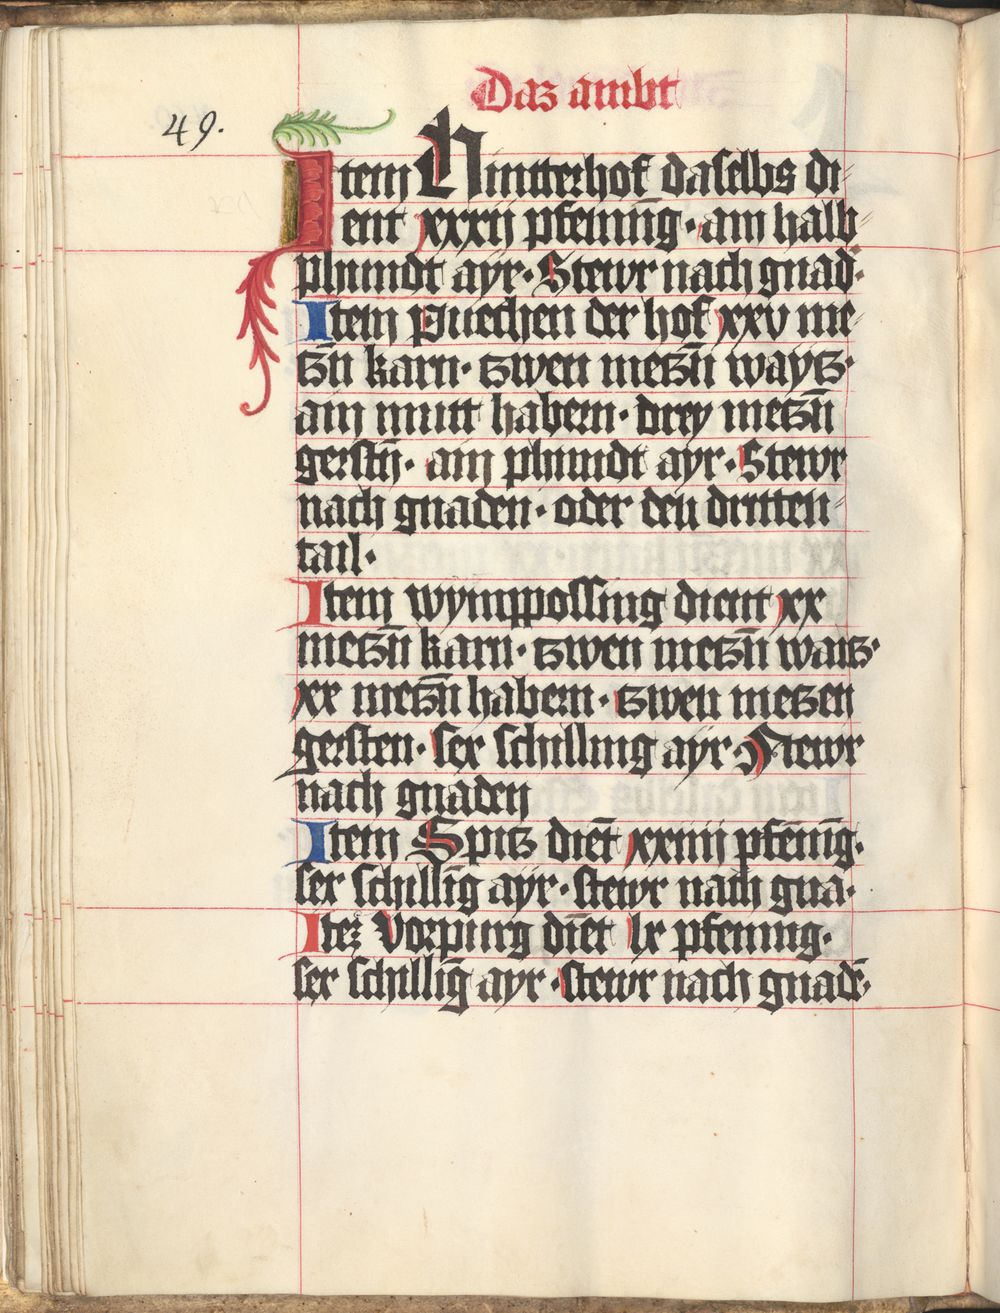 Daz ambt
49.
Item Hintterhof daselbs di⸗
ent xxxij pfenīng · ain halb⸗
phundt ayr · Stewr nach gnad·
Item Puechen der hof xxv me⸗
tzn̄ karn · tzwen metzn̄ waytz·
ain mutt habern · drey metzn̄
gerstn̄ · ain phundt ayr · Stewr
nach gnaden · oder den dritten⸗
tail ·
Item wymppossing dient xx
metzn̄ karn · tzwen metzn̄ waitz·
xx metzn̄ habern · tzwen metzen
gersten · sex schilling ayr · Stewr
nach gnaden
Item Spitz diēt xxiiij pfēnīg·
sex schillīg ayr · stewr nach gna·
Itez Vorpurg diēt lx pfening·
sex schillīg ayr · stewr nach gnad̄·